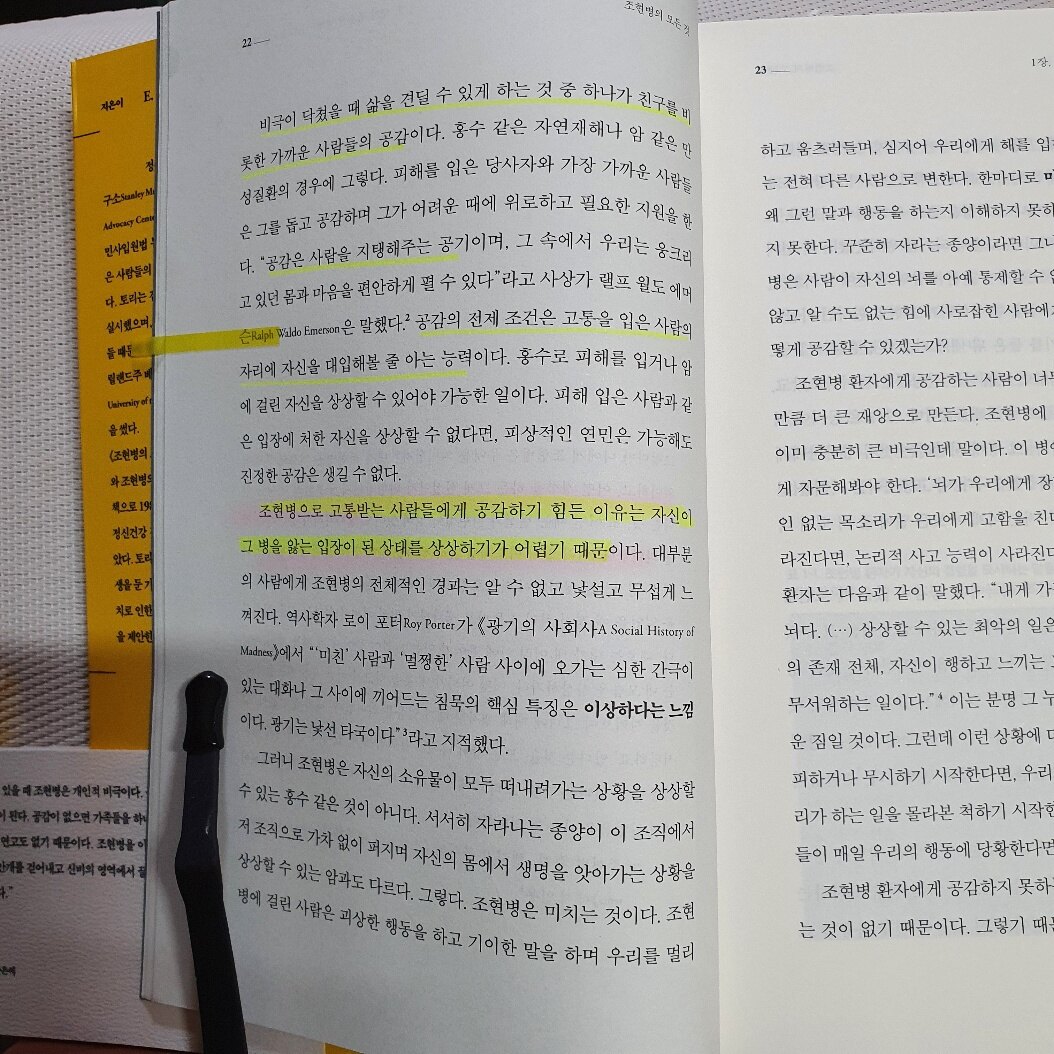 조현병의 모든 것
22
비극이 닥쳤을 때 삶을 견딜 수 있게 하는 것 중 하나가 친구를 비
롯한 가까운 사람들의 공감이다. 홍수 같은 자연재해나 암 같은 만
성질환의 경우에 그렇다. 피해를 입은 당사자와 가장 가까운 사람들
은 그를 돕고 공감하며 그가 어려운 때에 위로하고 필요한 지원을 한
다. “공감은 사람을 지탱해주는 공기이며, 그 속에서 우리는 웅크리
고 있던 몸과 마음을 편안하게 펼 수 있다”라고 사상가 랠프 월도 에머
슨Ralph Waldo Emerson은 말했다.2 공감의 전제 조건은 고통을 입은 사람의
자리에 자신을 대입해볼 줄 아는 능력이다. 홍수로 피해를 입거나 암
에 걸린 자신을 상상할 수 있어야 가능한 일이다. 피해 입은 사람과 같
은 입장에 처한 자신을 상상할 수 없다면, 피상적인 연민은 가능해도
진정한 공감은 생길 수 없다.
조현병으로 고통받는 사람들에게 공감하기 힘든 이유는 자신이
그 병을 앓는 입장이 된 상태를 상상하기가 어렵기 때문이다. 대부분
의 사람에게 조현병의 전체적인 경과는 알 수 없고 낯설고 무섭게 느
껴진다. 역사학자 로이 포터Roy Porter가 《광기의 사회사A Social History of
Madness》에서 “‘미친’ 사람과 ‘멀쩡한’ 사람 사이에 오가는 심한 간극이
있는 대화나 그 사이에 끼어드는 침묵의 핵심 특징은 이상하다는 느낌
이다. 광기는 낯선 타국이다”3라고 지적했다.
그러니 조현병은 자신의 소유물이 모두 떠내려가는 상황을 상상할
수 있는 홍수 같은 것이 아니다. 서서히 자라나는 종양이 이 조직에서
저 조직으로 가차 없이 퍼지며 자신의 몸에서 생명을 앗아가는 상황을
상상할 수 있는 암과도 다르다. 그렇다. 조현병은 미치는 것이다. 조현
병에 걸린 사람은 괴상한 행동을 하고 기이한 말을 하며 우리를 멀리
23
1장.
하고 움츠러들며, 심지어 우리에게 해를 입
는 전혀 다른 사람으로 변한다. 한마디로
왜 그런 말과 행동을 하는지 이해하지 못하
지 못한다. 꾸준히 자라는 종양이라면 그나
병은 사람이 자신의 뇌를 아예 통제할 수 없
않고 알 수도 없는 힘에 사로잡힌 사람에게
떻게 공감할 수 있겠는가?
조현병 환자에게 공감하는 사람이 너무
만큼 더 큰 재앙으로 만든다. 조현병에
이미 충분히 큰 비극인데 말이다. 이 병에
게 자문해봐야 한다. ‘뇌가 우리에게 장
인 없는 목소리가 우리에게 고함을 친다
라진다면, 논리적 사고 능력이 사라진다
환자는 다음과 같이 말했다. “내게 가
뇌다. (…) 상상할 수 있는 최악의 일은
의 존재 전체, 자신이 행하고 느끼는
무서워하는 일이다.”4 이는 분명 그 누
운 짐일 것이다. 그런데 이런 상황에
피하거나 무시하기 시작한다면, 우리
리가 하는 일을 몰라본 척하기 시작한
들이 매일 우리의 행동에 당황한다면
조현병 환자에게 공감하지 못하
는 것이 없기 때문이다. 그렇기 때문
지은이 E.
구소Stanley
Advocacy
민사입원법
은 사람들의
다. 토리는
실시했으며,
들 때문
릴랜드주
University of
을 썼다.
《조현병의
와 조현병
책으로 198
정신건강
았다. 토리
생을 둔
치로 인한
을 제안한
있을 때 조현병은 개인적 비극이다.
이 된다. 공감이 없으면 가족들을 하나
연고도 없기 때문이다. 조현병을
안개를 걷어내고 신비의 영역에서